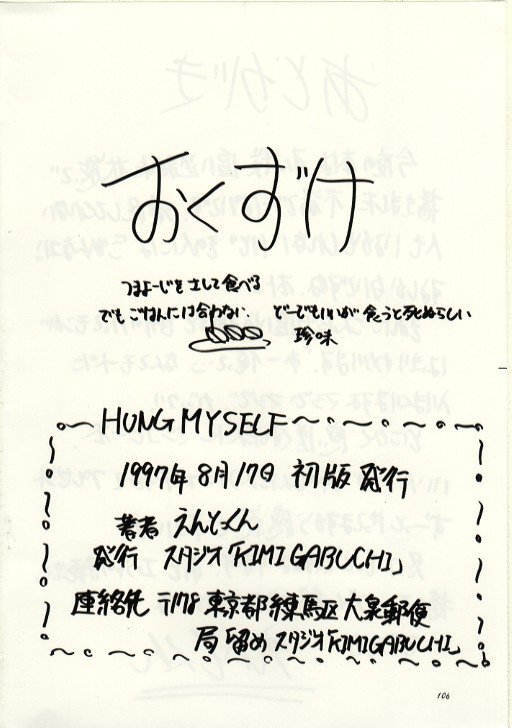 おくずけ
つまよーじをさして食べる
でもごはんには合わない。
どーでもいいが食うと死ぬらしい
珍味
HUNG MYSELF
1997年8月17日 初版発行
著者 えんとっくん
発行 スタジオ「KIMIGABUCHI」
連絡先 〒178 東京都練馬区大泉郵便
局留めスタジオ「KIMIGABUCHI」
106